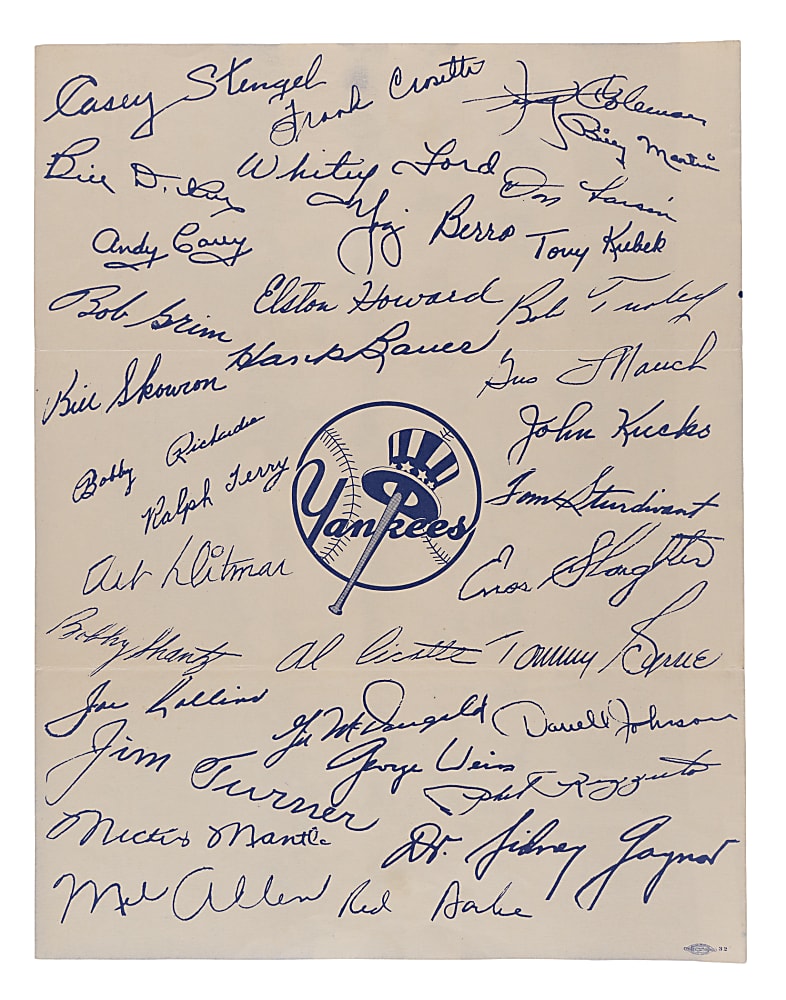 Casey Stengel
Frank Crosetti
Jerry Coleman
Billy Martin
Bill Dickey
Whitey Ford
Don Larsen
Andy Carey
Yogi Berra
Tony Kubek
Bob Grim
Elston Howard
Bob Turley
Hank Bauer
Gus Mauch
Bill Skowron
John Kucks
Bobby Richardson
Ralph Terry
Yankees
Tom Sturdivant
Art Ditmar
Enos Slaughter
Bobby Shantz
Al Cicotte
Tommy Byrne
Joe Collins
Gil McDougald
Darrell Johnson
Jim Turner
George Weiss
Phil Rizzuto
Mickey Mantle
Dr. Sidney Gaynor
Mel Allen
Red Barber
32